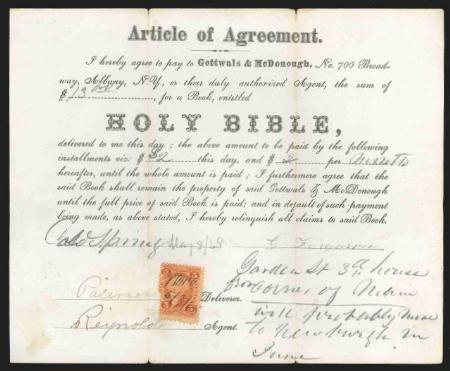 Article of Agreement.
I hereby agree to pay to Gottwals & McDonough, No. 700 Broad-
way, Albany, N.Y., or their duly authorized Agent, the sum of
$ 13 00, for a Book, entitled
HOLY BIBLE,
delivered to me this day; the above amount to be paid by the following
installments viz: $ 2 this day, and $ 2 per Month
hereafter, until the whole amount is paid; I furthermore agree that the
said Book shall remain the property of said Gottwals & McDonough
until the full price of said Book is paid; and in default of such payment
being made, as above stated, I hereby relinquish all claims to said Book.
Cold Spring May 8/68
Garden St 3d house
from corner of Main
Paterson Deliverer.
will probably move
Reynolds Agent.
to Newburgh in
June